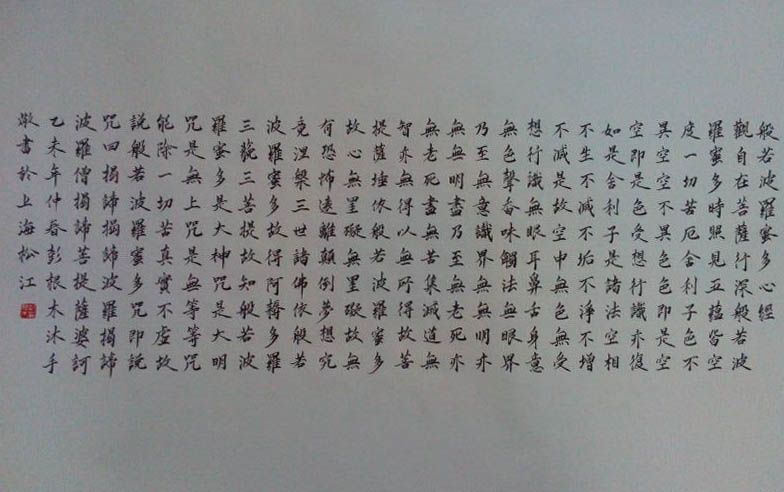 般若波羅蜜多心經
觀自在菩薩行深般若波
羅蜜多時照見五蘊皆空
度一切苦厄舍利子色不
異空空不異色色即是空
空即是色受想行識亦復
如是舍利子是諸法空相
不生不滅不垢不淨不增
不減是故空中無色無受
想行識無眼耳鼻舌身意
無色聲香味觸法無眼界
乃至無意識界無無明亦
無無明盡乃至無老死亦
無老死盡無苦集滅道無
智亦無得以無所得故菩
提薩埵依般若波羅蜜多
故心無罣礙無罣礙故無
有恐怖遠離顛倒夢想究
竟涅槃三世諸佛依般若
波羅蜜多故得阿耨多羅
三藐三菩提故知般若波
羅蜜多是大神咒是大明
咒是無上咒是無等等咒
能除一切苦真實不虛故
說般若波羅蜜多咒即說
咒曰揭諦揭諦波羅揭諦
波羅僧揭諦菩提薩婆訶
乙未年仲春彭根木沐手
敬書於上海松江